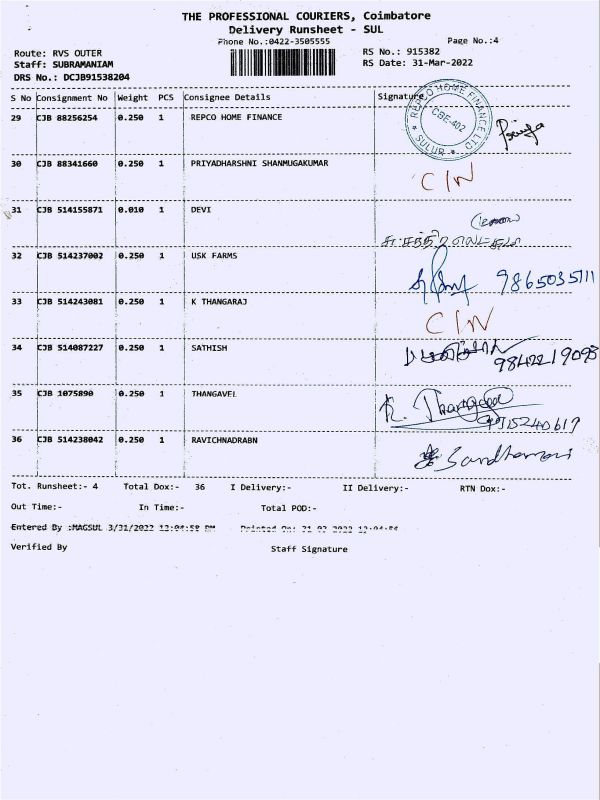 THE PROFESSIONAL COURIERS, Coimbatore
Delivery Runsheet - SUL
Phone No.:0422-3505555
Page No.:4
Route: RVS OUTER
RS No.: 915382
Staff: SUBRAMANIAM
RS Date: 31-Mar-2022
DRS No.: DCJB91538204
S No Consignment No Weight PCS Consignee Details Signature
29 CJB 88256254 0.250 1 REPCO HOME FINANCE
REPCO HOME FINANCE LTD
CBE-402
SULUR
30 CJB 88341660 0.250 1 PRIYADHARSHNI SHANMUGAKUMAR C/N
31 CJB 514155871 0.010 1 DEVI
32 CJB 514237002 0.250 1 USK FARMS 9865035111
33 CJB 514243081 0.250 1 K THANGARAJ C/N
34 CJB 514087227 0.250 1 SATHISH 9842219098
35 CJB 1075890 0.250 1 THANGAVEL K. Thangavel
36 CJB 514238042 0.250 1 RAVICHNADRABN
Tot. Runsheet:- 4 Total Dox:- 36 I Delivery:- II Delivery:- RTN Dox:-
Out Time:- In Time:- Total POD:-
Entered By :MAGSUL 3/31/2022 12:04:58 PM Printed On: 31-03-2022 12:04:56
Verified By Staff Signature